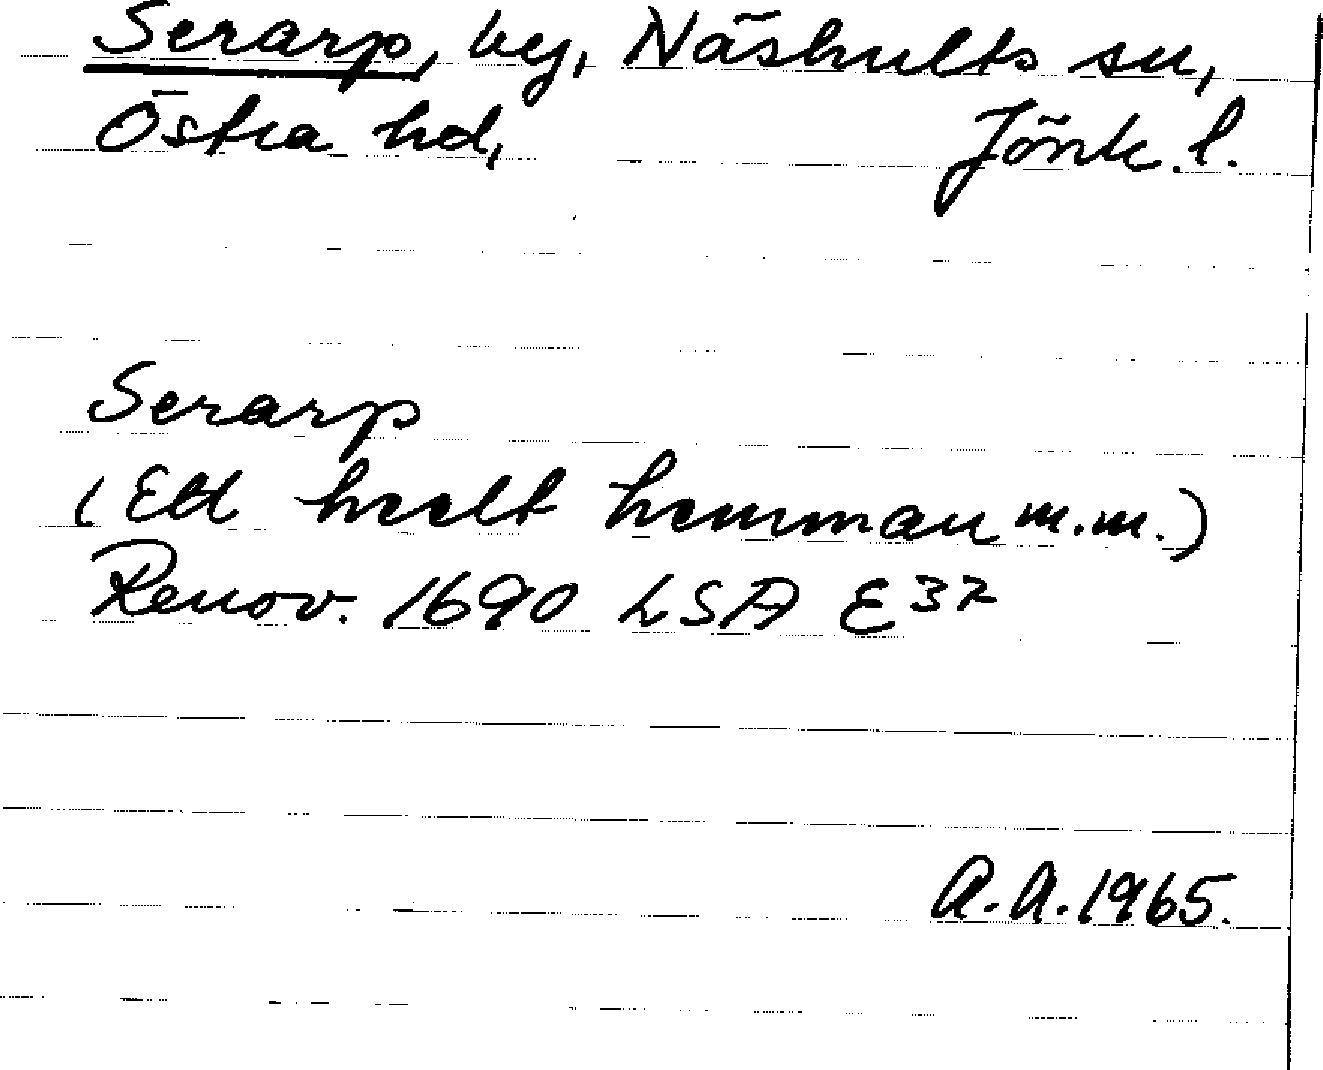 Serarp, by, Näshults sn,
Östra hd, Jönk. l.
Serarp
(Ett heelt hemman m.m.)
Renov. 1690 LSA E 37
A.A. 1965.